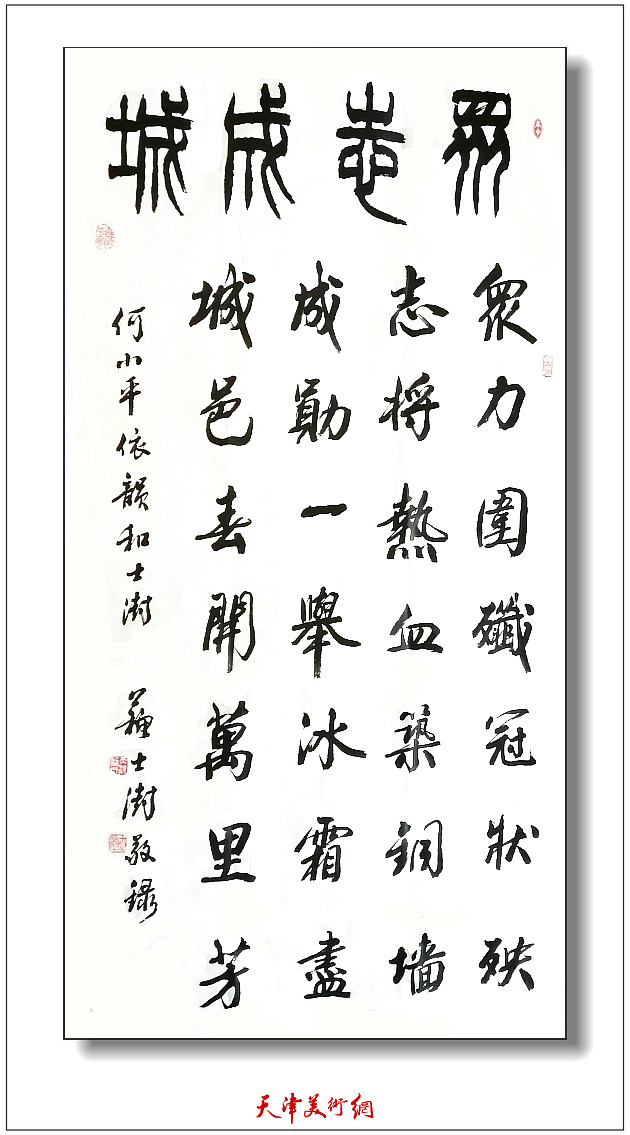 眾志成城
眾力圍殲冠狀殃
志将熱血築銅墙
成勛一舉冰霜盡
城邑春開萬里芳
何小平依韻和士澍
蘇士澍敬録
天津美術網